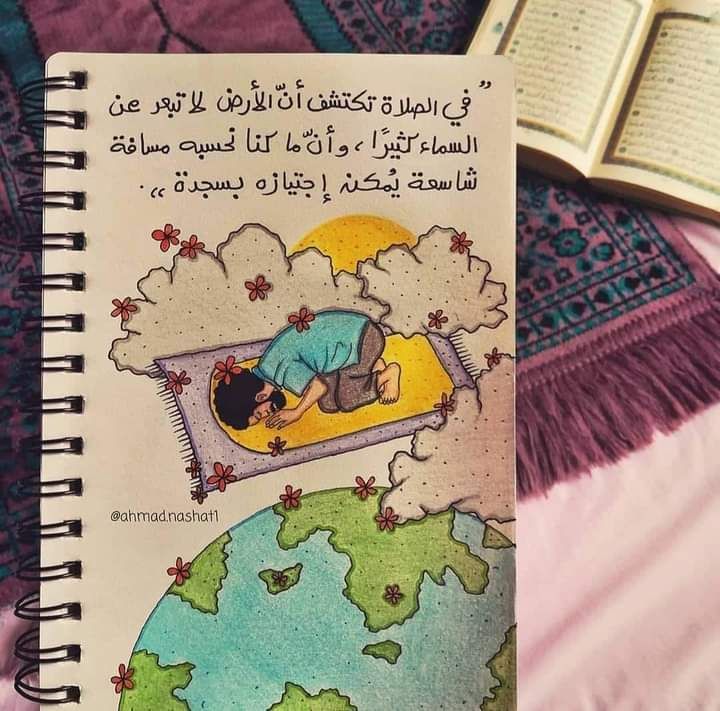 ”في الصلاة تكتشف أنّ الأرض لا تبعد عن
السماء كثيرًا، وأنّ ما كنا نحسبه مسافة
شاسعة يُمكنه إجتيازه بسجدة“.
@ahmad.nashat1